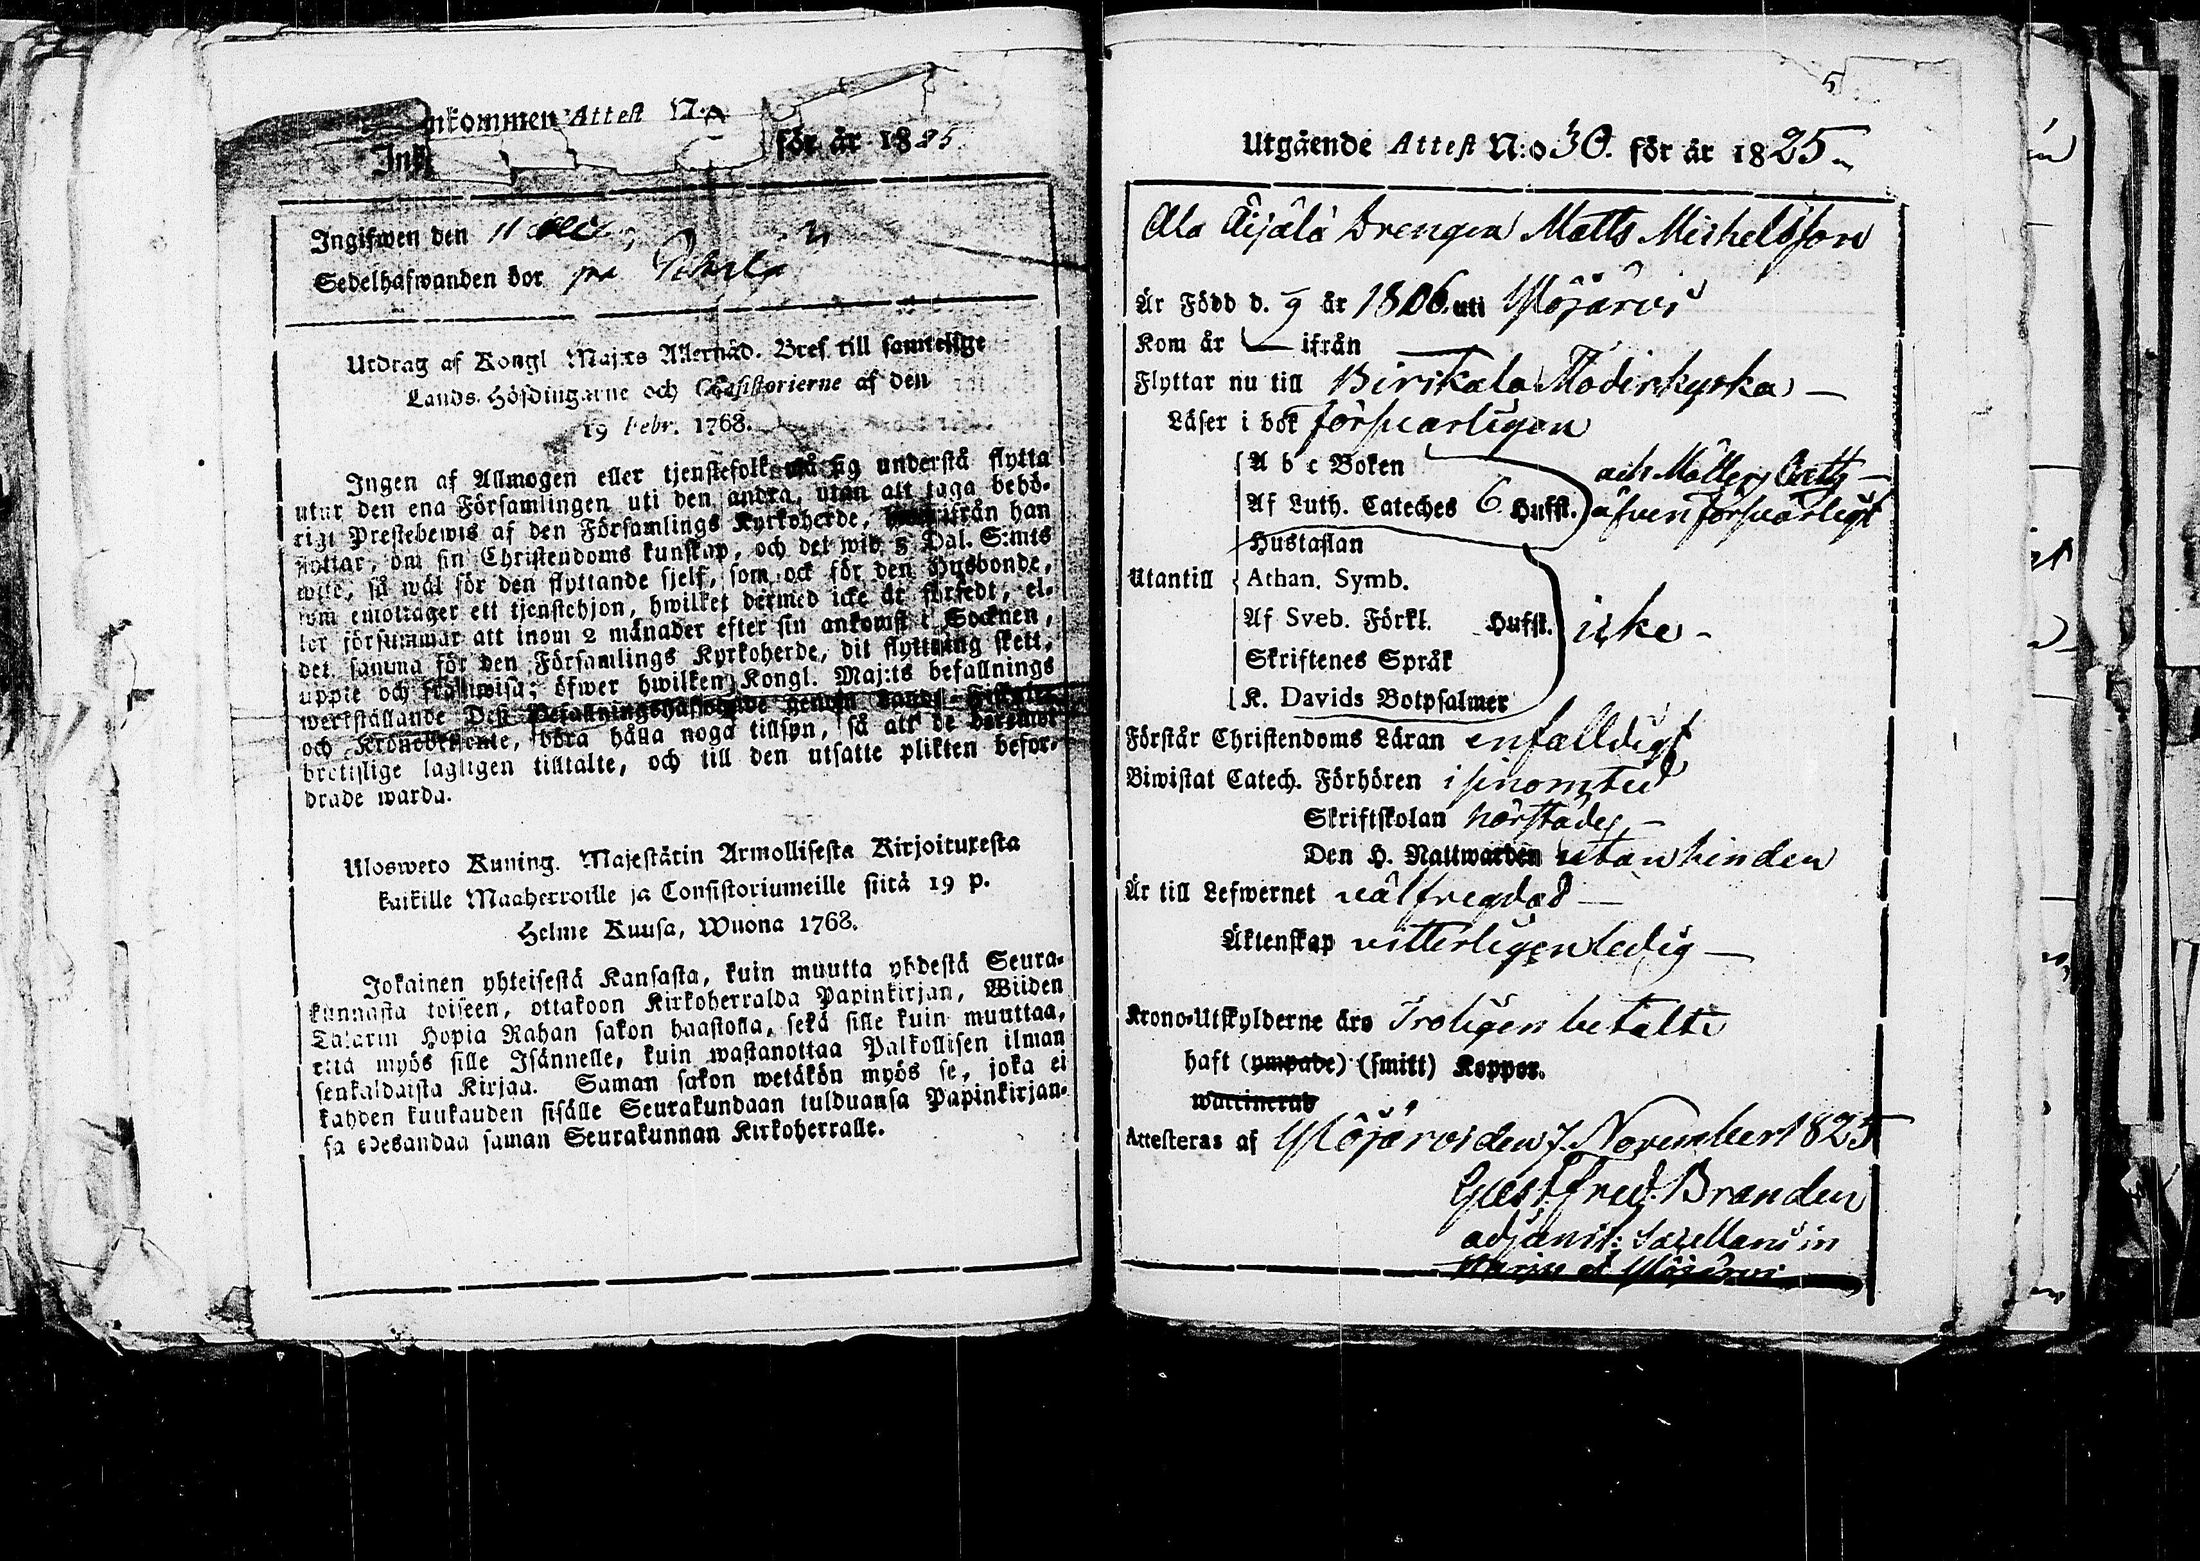 Inkommen Attest N:o
för år 1825.
Ingifwen den 11
Sedelhafwanden bor på
Utdrag af Kongl Maj:ts Allernåd. Bref till samtelige
Lands-Höfdingarne och Consistorierne af den
19 Febr. 1768.
Ingen af Allmogen eller tjenstefolk må sig understå flytta
utur den ena Församlingen uti den andra, utan att taga behö-
rigt Prestebewis af den Församlings Kyrkoherde, ifrån han
flyttar, om sin Christendoms kunskap, och det wid 5 Dal. S:mts
wite, så wäl för den flyttande sjelf, som ock för den Husbonde,
som emottager ett tjenstehjon, hwilket dermed icke är försedt, el-
ler försummar att inom 2 månader efter sin ankomst i Socknen,
det samma för den Församlings Kyrkoherde, dit flyttning skett,
uppte och framwisa; öfwer hwilken Kongl. Maj:ts befallnings
werkställande Dess Befallningshafwande genom Lands-Fiskaler
och Kronobetjente, böra hålla noga tillsyn, så att de
brottslige lagligen tilltalte, och till den utsatte plikten befor-
drade warda.
Uloswето Kuning. Majestätin Armollisesta Kirjoituxesta
kaikille Maaherroille ja Consistoriumeille siitä 19 p.
Helme Kuusa, Wuona 1768.
Jokainen yhteisestä Kansasta, kuin muutta yhdestä Seura-
kunnasta toiseen, ottakoon Kirkoherralda Papinkirjan, Wiiden
Talarin Hopia Rahan sakon haastolla, sekä sille kuin muuttaa,
että myös sille Isännelle, kuin wastanottaa Palkollisen ilman
senkaldaista Kirjaa. Saman sakon wetäkön myös se, joka ei
kahden kuukauden sisälle Seurakundaan tulduansa Papinkirjan-
sa edesandaa saman Seurakunnan Kirkoherralle.
5
Utgående Attest N:o 30. för år 1825
Ala Äijälä Drengen Matts Michelsson
Är Född d. 9 år 1806 uti Ylöjärvi
Kom år — ifrån —
Flyttar nu till Birikala Moderkyrka —
Läser i bok försvarligen
A b c Boken och Möllers Cath —
Af Luth. Cateches 6 Hufst. äfven försvarligt
Hustaflan
Utantill Athan. Symb.
Af Sveb. Förkl. Hufst. icke -
Skriftenes Språk
K. Davids Botpsalmer
Förstår Christendoms Läran enfalldigt
Biwistat Catech. Förhören i sinom tid
Skriftskolan härstädes —
Den H. Nattwarden utan hinder
Är till Lefwernet välfregdad —
Äktenskap vitterligen ledig —
Krono-Utskylderne äro Troligen betalte
haft (ympade) (smitt) Koppor.
waccinerad
Attesteras af Ylöjärvi den 7. November 1825
Gust Fred. Brander
adjunct: Sacellani in
Ylöjärvi